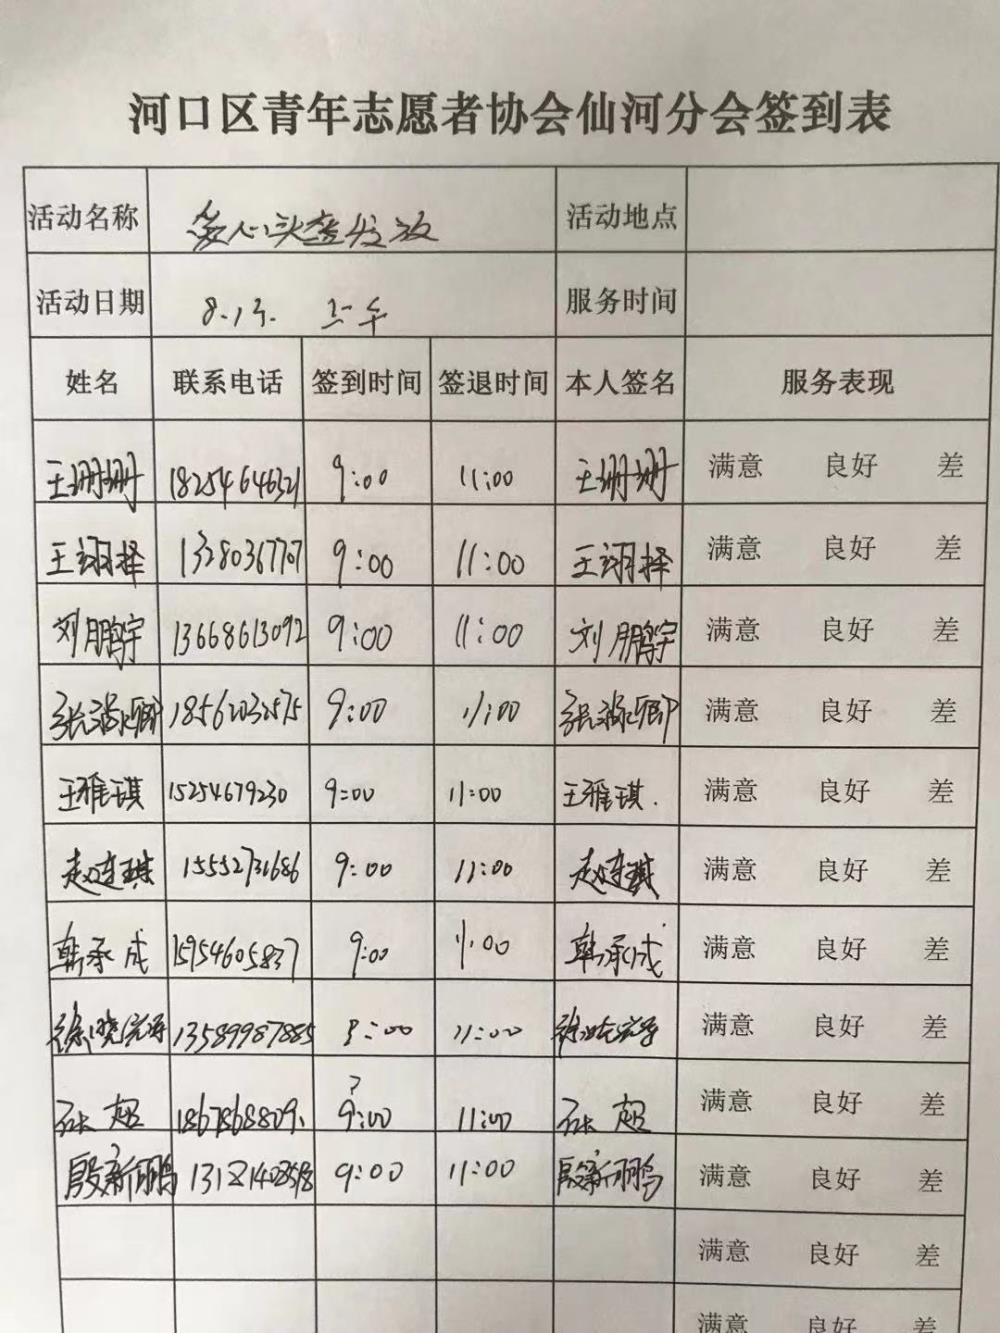 河口区青年志愿者协会仙河分会签到表
活动名称 爱心头盔发放 活动地点
活动日期 8.13. 上午 服务时间
姓名 联系电话 签到时间 签退时间 本人签名 服务表现
王珊珊 18254646321 9:00 11:00 王珊珊 满意 良好 差
王翊择 13280367707 9:00 11:00 王翊择 满意 良好 差
刘鹏宇 13668613092 9:00 11:00 刘鹏宇 满意 良好 差
张 18562032575 9:00 11:00 张 满意 良好 差
王雅琪 15254679230 9:00 11:00 王雅琪. 满意 良好 差
赵连琪 15552731686 9:00 11:00 赵连琪 满意 良好 差
韩承成 15954605837 9:00 11:00 韩承成 满意 良好 差
徐晓 13589987885 9:00 11:00 徐晓 满意 良好 差
张超 9:00 11:00 张超 满意 良好 差
殷新鹏 9:00 11:00 殷新鹏 满意 良好 差
满意 良好 差
满意 良好 差